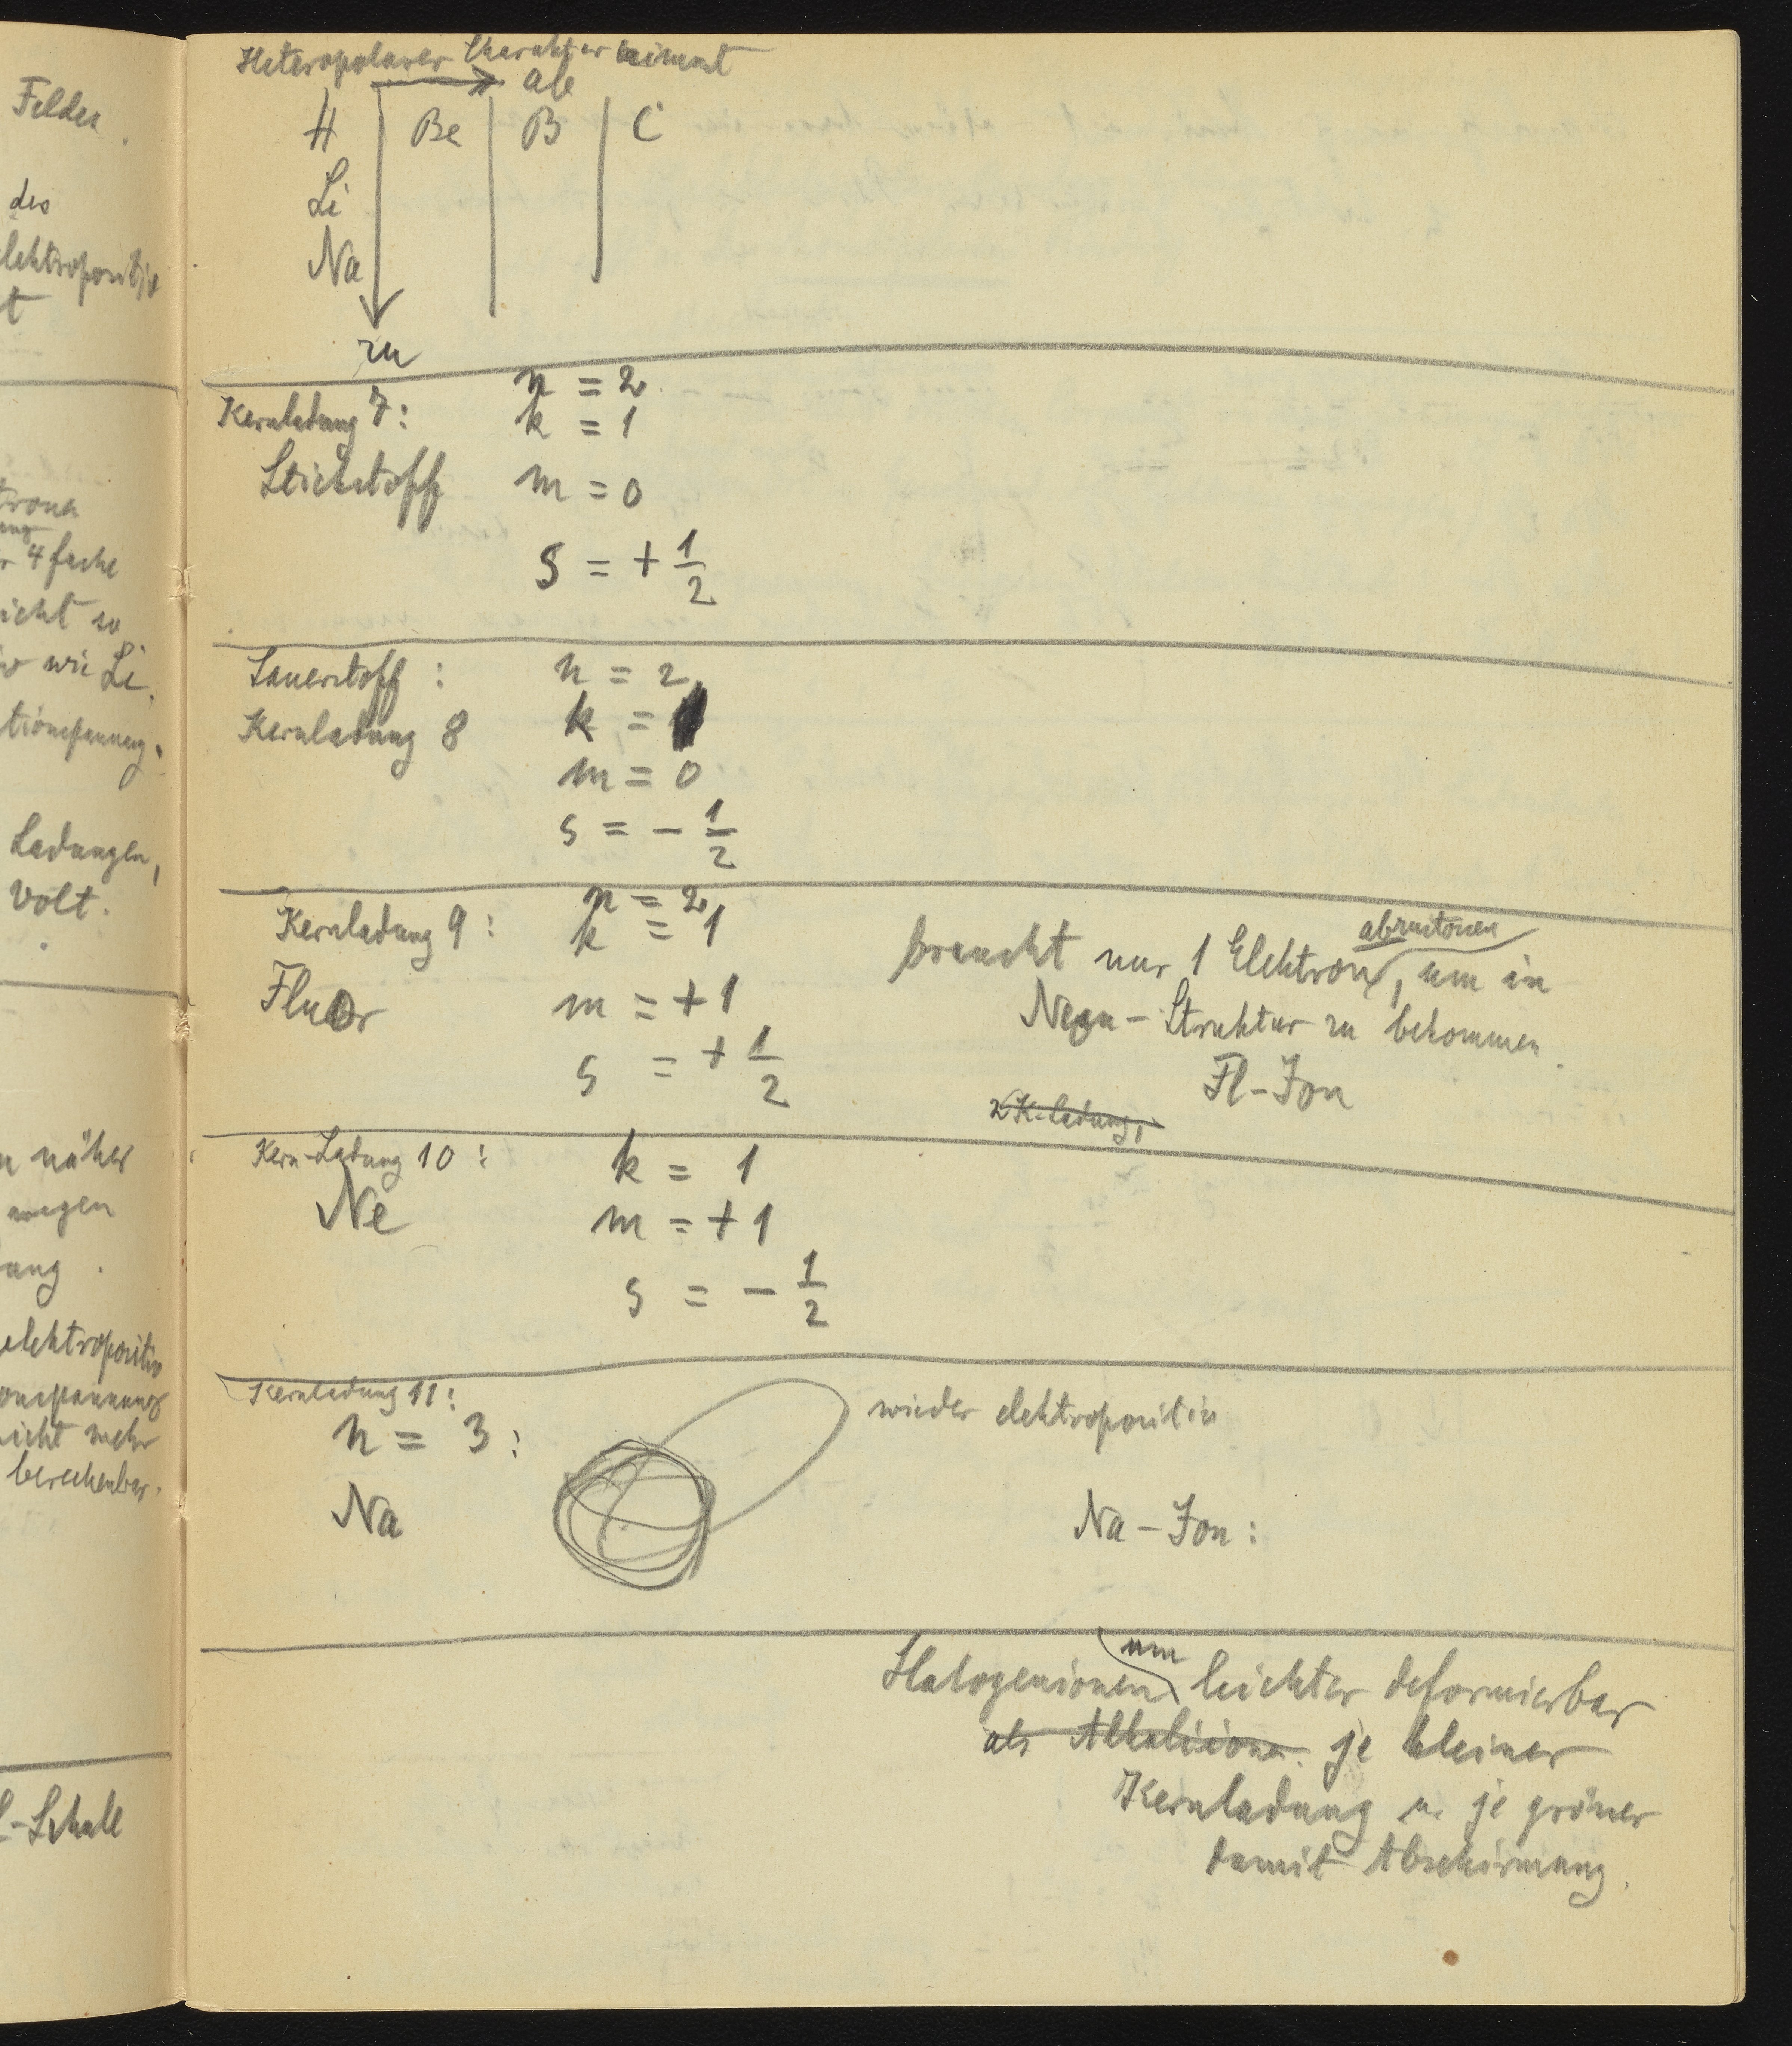 Felder.
des
elektropositiv
t
4 fache
icht so
wie Li.
Ladungen,
Volt.
näher
wegen
elektropositiv
icht mehr
berechenbar.
L-Schale
Heteropolarer Charakter nimmt
ab
H Be B C
Li
Na
zu
Kernladung 7: n = 2
k = 1
Stickstoff m = 0
s = + 1/2
Sauerstoff : n = 2
Kernladung 8 k = 1
m = 0
s = - 1/2
n = 2
Kernladung 9 : k = 1
Fluor m = + 1
s = + 1/2
abzustossen
braucht nur 1 Elektron, um in
Neon-Struktur zu bekommen.
Fl-Jon
K-ladung,
Kern-Ladung 10 : k = 1
Ne m = + 1
s = - 1/2
Kernladung 11 :
n = 3 :
wieder elektropositiv
Na
Na-Jon :
um
Halogenionen leichter deformierbar
als Alkaliionen je kleiner
Kernladung u. je grösser
damit Abschirmung.